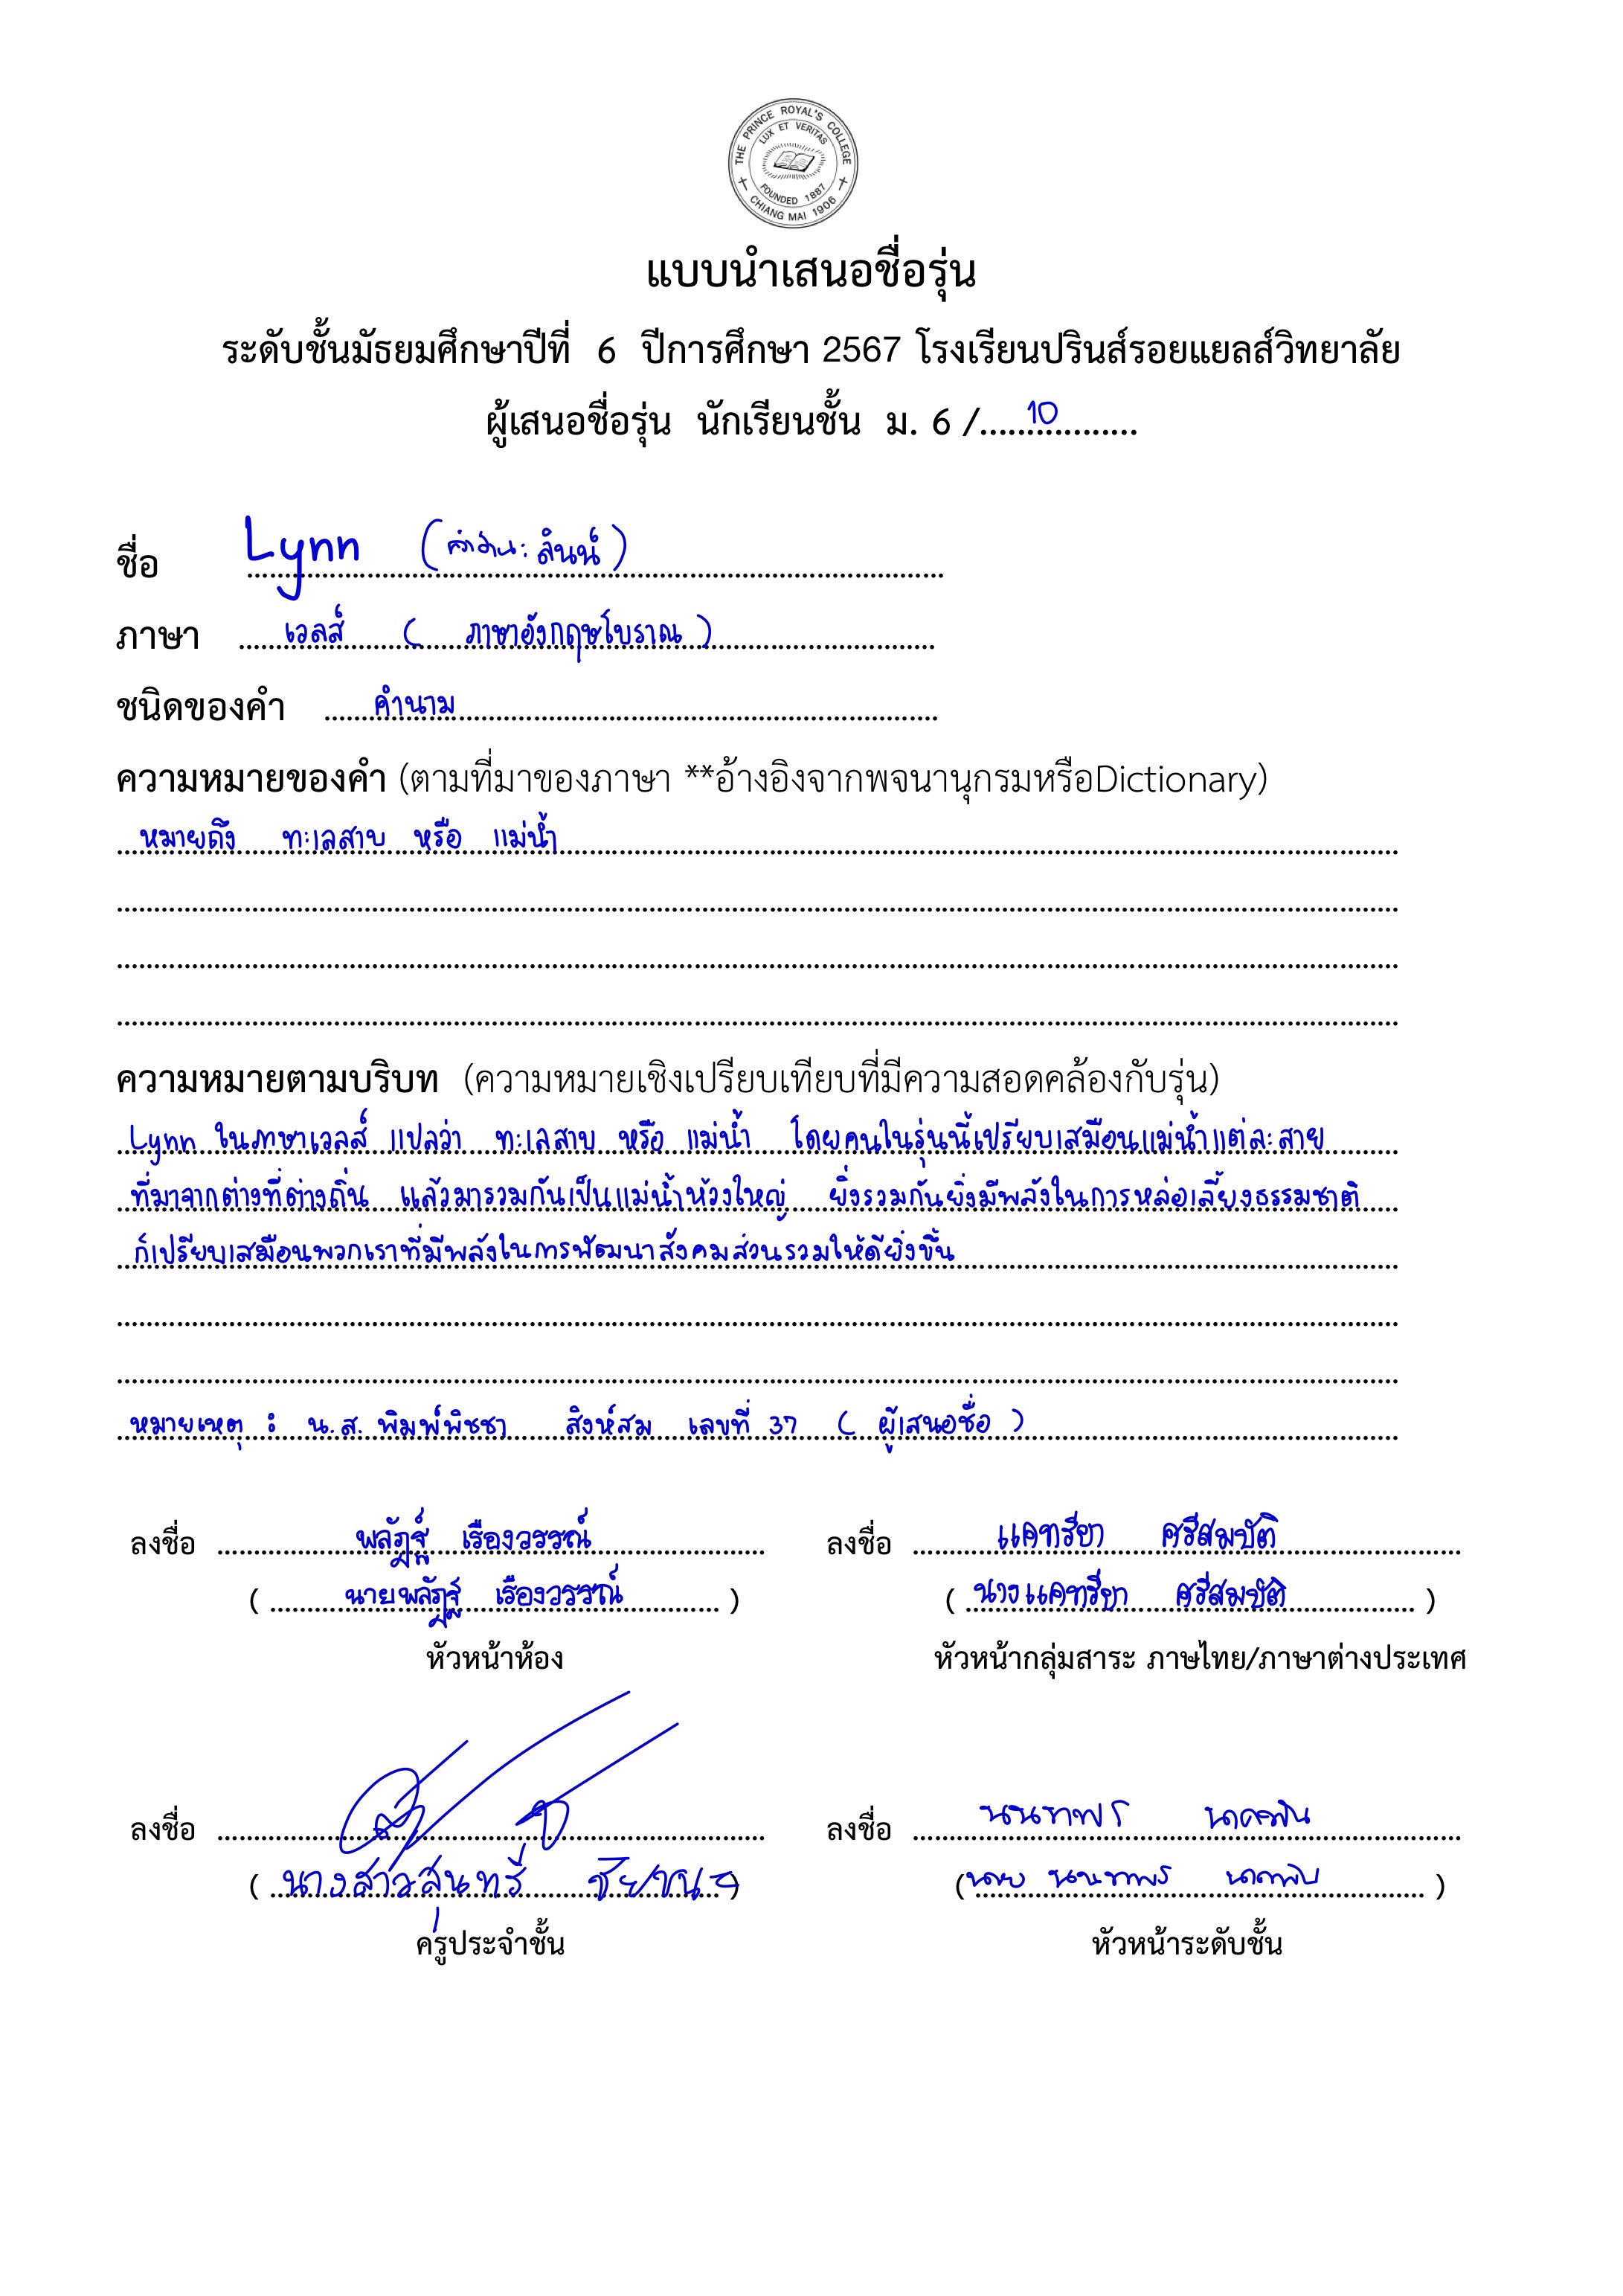 THE PRINCE ROYAL'S COLLEGE
LUX ET VERITAS
FOUNDED 1887
CHIANG MAI 1906
แบบนำเสนอชื่อรุ่น
ระดับชั้นมัธยมศึกษาปีที่ 6 ปีการศึกษา 2567 โรงเรียนปรินส์รอยแยลส์วิทยาลัย
ผู้เสนอชื่อรุ่น นักเรียนชั้น ม. 6 /.....10.....
ชื่อ Lynn (คำอ่าน : ลินน์)
ภาษา เวลส์ ( ภาษาอังกฤษโบราณ )
ชนิดของคำ คำนาม
ความหมายของคำ (ตามที่มาของภาษา **อ้างอิงจากพจนานุกรมหรือDictionary)
หมายถึง ทะเลสาบ หรือ แม่น้ำ
ความหมายตามบริบท (ความหมายเชิงเปรียบเทียบที่มีความสอดคล้องกับรุ่น)
Lynn ในภาษาเวลส์ แปลว่า ทะเลสาบ หรือ แม่น้ำ โดยคนในรุ่นนี้เปรียบเสมือนแม่น้ำแต่ละสาย
ที่มาจากต่างที่ต่างถิ่น แล้วมารวมกันเป็นแม่น้ำห้วงใหญ่ ยิ่งรวมกันยิ่งมีพลังในการหล่อเลี้ยงธรรมชาติ
ก็เปรียบเสมือนพวกเราที่มีพลังในการพัฒนาสังคมส่วนรวมให้ดียิ่งขึ้น
หมายเหตุ : น.ส. พิมพ์พิชชา สิงห์สม เลขที่ 37 ( ผู้เสนอชื่อ )
ลงชื่อ พลัฏฐ์ เรืองวรรณ์ ลงชื่อ แคทรียา ศรีสมบัติ
( นายพลัฏฐ์ เรืองวรรณ์ ) ( นางแคทรียา ศรีสมบัติ )
หัวหน้าห้อง หัวหน้ากลุ่มสาระ ภาษไทย/ภาษาต่างประเทศ
ลงชื่อ ลงชื่อ นันทพร
( นางสาวสุนทรี ) ( นาย นันทพร )
ครูประจำชั้น หัวหน้าระดับชั้น